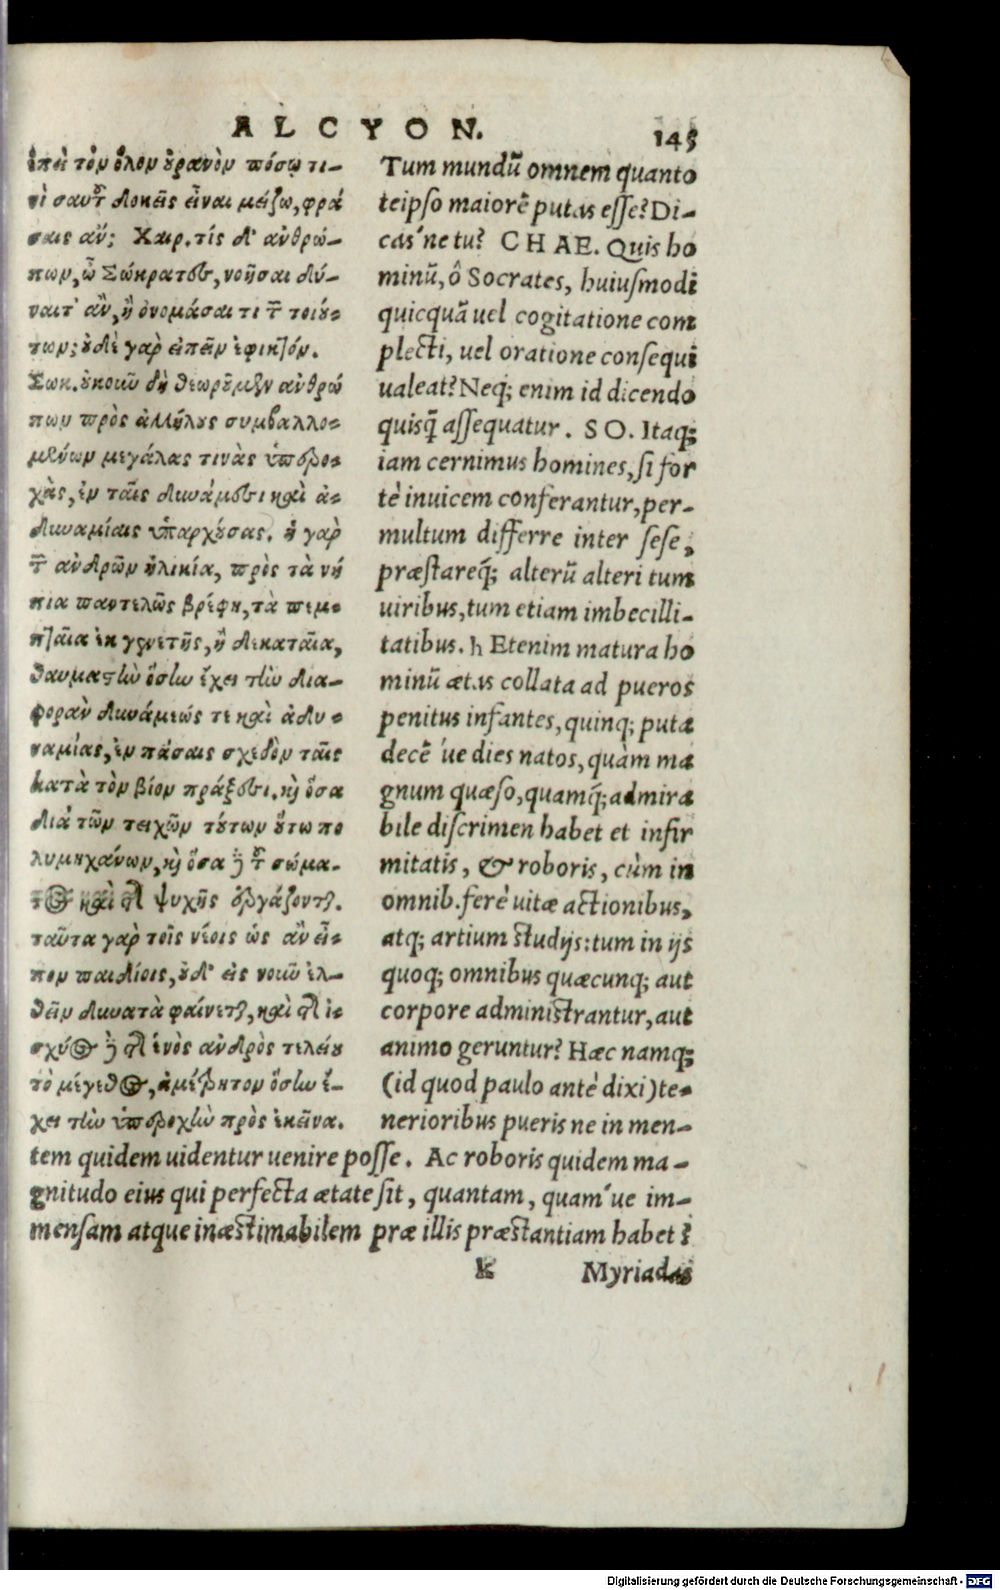 ALCYON. 145
ἐπεὶ τὸν ὅλον οὐρανὸν πόσῳ τι-
νὶ σαυτοῦ δοκεῖς εἶναι μείζω, φρά
σαις ἄν; Χαιρ. τίς δ' ἀνθρώ-
πων, ὦ Σώκρατες, νοῆσαι δύ-
ναιτ' ἂν, ἢ ὀνομάσαι τι τῶν τοιού-
των; οὐδὲ γὰρ εἰπεῖν ἐφικτόν.
Σωκ. οὐκοῦν δὴ θεωροῦμεν ἀνθρώ
πων πρὸς ἀλλήλους συμβαλλο-
μένων μεγάλας τινὰς ὑπερο-
χὰς, ἐν ταῖς δυνάμεσι καὶ ἀ-
δυναμίαις ὑπαρχούσας. ἡ γὰρ
τῶν ἀνδρῶν ἡλικία, πρὸς τὰ νή
πια παντελῶς βρέφη, τὰ πεμ-
πταῖα ἐκ γενετῆς, ἢ δεκαταῖα,
θαυμαστὴν ὅσην ἔχει τὴν δια-
φορὰν δυνάμεώς τε καὶ ἀδυ-
ναμίας, ἐν πάσαις σχεδὸν ταῖς
κατὰ τὸν βίον πράξεσι. καὶ ὅσα
διὰ τῶν τεχνῶν τούτων οὕτω πο
λυμηχάνων, καὶ ὅσα διὰ τοῦ σώμα-
τος καὶ τῆς ψυχῆς ἐργάζονται.
ταῦτα γὰρ τοῖς νέοις ὡς ἂν εἶ-
πον παιδίοις, οὐδ' εἰς νοῦν ἐλ-
θεῖν δυνατὰ φαίνεται, καὶ τῆς ἰ-
σχύος δὲ τῆς ἑνὸς ἀνδρὸς τελείου
τὸ μέγεθος, ἀμέτρητον ὅσην ἔ-
χει τὴν ὑπεροχὴν πρὸς ἐκεῖνα.
Tum mundũ omnem quanto
teipso maiorẽ putas esse? Di-
cas'ne tu? CHAE. Quis ho
minũ, ô Socrates, huiusmodi
quicquã uel cogitatione com
plecti, uel oratione consequi
ualeat? Neq; enim id dicendo
quisq̃ assequatur. SO. Itaq;
iam cernimus homines, si for
tè inuicem conferantur, per-
multum differre inter sese,
præstareq́; alterũ alteri tum
uiribus, tum etiam imbecilli-
tatibus. h Etenim matura ho
minũ ætas collata ad pueros
penitus infantes, quinq; puta
decẽ 'ue dies natos, quàm ma
gnum quæso, quamq́; admira
bile discrimen habet et infir
mitatis, & roboris, cùm in
omnib. ferè uitæ actionibus,
atq; artium studijs: tum in ijs
quoq; omnibus quæcunq; aut
corpore administrantur, aut
animo geruntur? Hæc namq;
(id quod paulo antè dixi) te-
nerioribus pueris ne in men-
tem quidem uidentur uenire posse. Ac roboris quidem ma-
gnitudo eius qui perfecta ætate sit, quantam, quam'ue im-
mensam atque inæstimabilem præ illis præstantiam habet?
k Myriadas
Digitalisierung gefördert durch die Deutsche Forschungsgemeinschaft - DFG